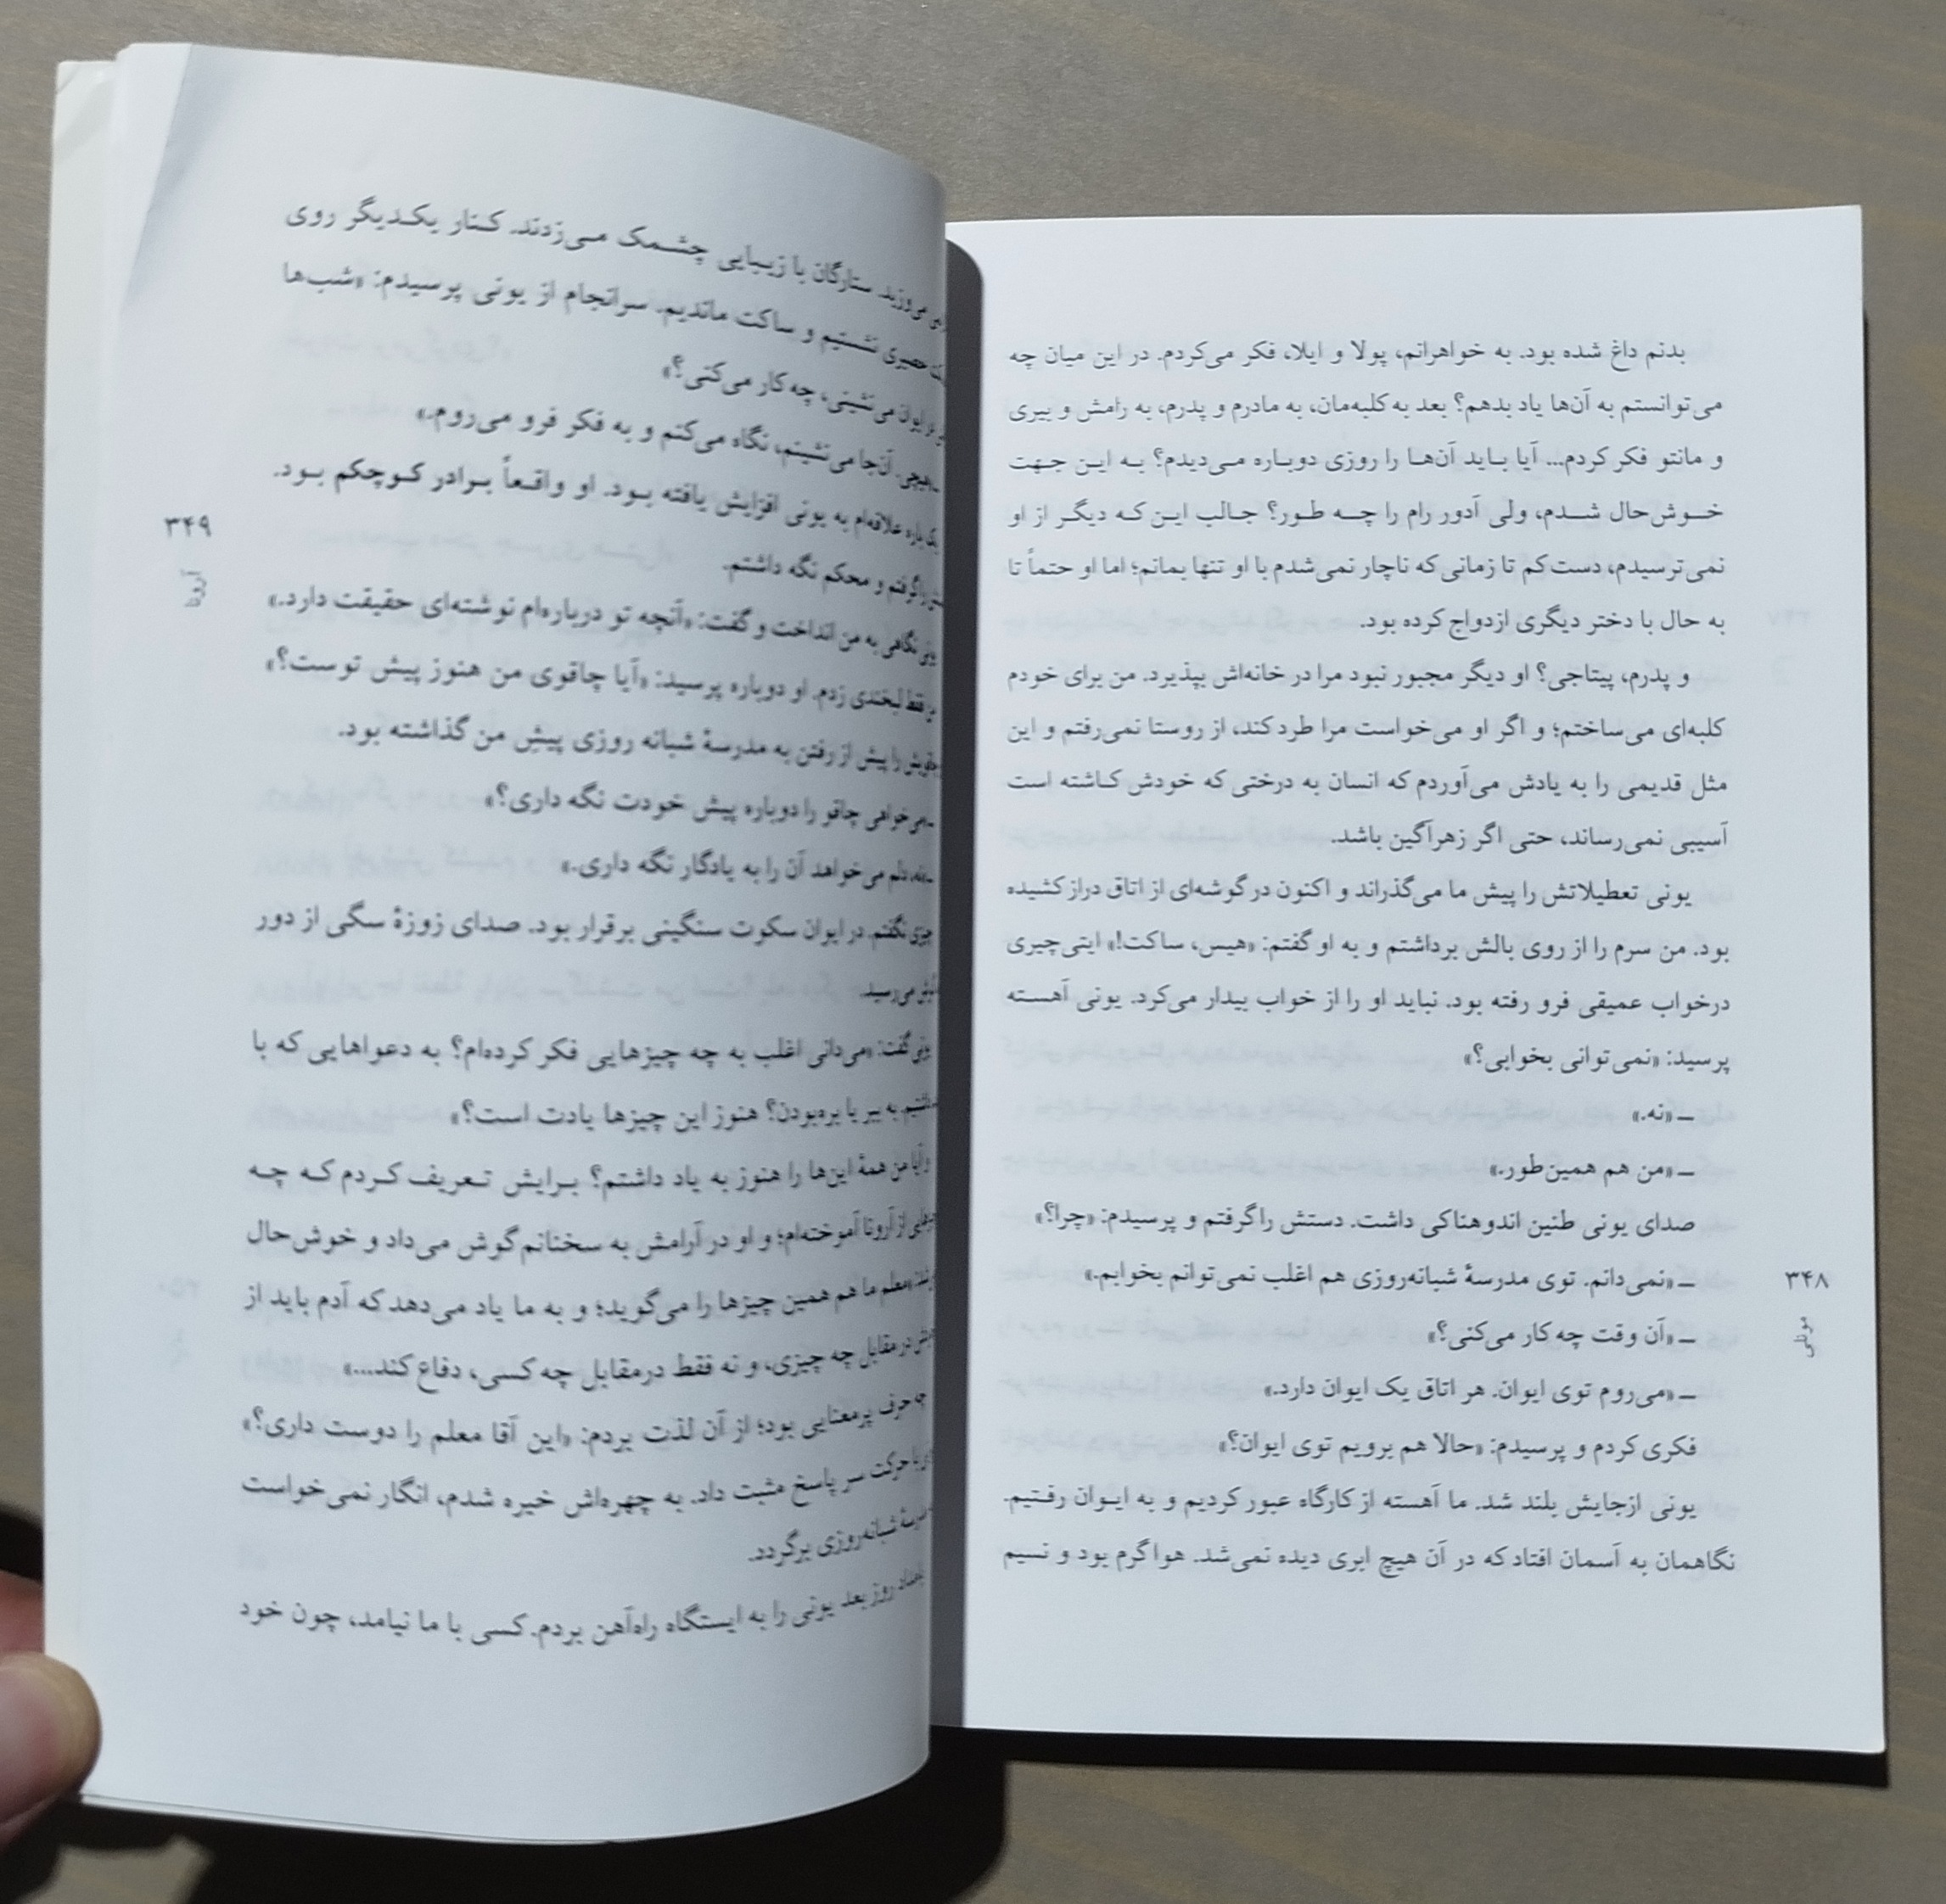 بدنم داغ شده بود. به خواهرانم، پولا و ایلا، فکر می‌کردم. در این میان چه
می‌توانستم به آن‌ها یاد بدهم؟ بعد به کلبه‌مان، به مادرم و پدرم، به رامش و بیری
و مانتو فکر کردم... آیا باید آن‌ها را روزی دوباره می‌دیدم؟ به این جهت
خوش‌حال شدم، ولی آدور رام را چه طور؟ جالب این‌که دیگر از او
نمی‌ترسیدم، دست‌کم تا زمانی که ناچار نمی‌شدم با او تنها بمانم؛ اما او حتماً تا
به حال با دختر دیگری ازدواج کرده بود.
و پدرم، پیتاجی؟ او دیگر مجبور نبود مرا در خانه‌اش بپذیرد. من برای خودم
کلبه‌ای می‌ساختم؛ و اگر او می‌خواست مرا طرد کند، از روستا نمی‌رفتم و این
مثل قدیمی را به یادش می‌آوردم که انسان به درختی که خودش کاشته است
آسیبی نمی‌رساند، حتی اگر زهرآگین باشد.
یونی تعطیلاتش را پیش ما می‌گذراند و اکنون در گوشه‌ای از اتاق دراز کشیده
بود. من سرم را از روی بالش برداشتم و به او گفتم: «هیس، ساکت!» ایتی‌چیری
درخواب عمیقی فرو رفته بود. نباید او را از خواب بیدار می‌کرد. یونی آهسته
پرسید: «نمی‌توانی بخوابی؟»
ــ «نه.»
ــ «من هم همین‌طور.»
صدای یونی طنین اندوهناکی داشت. دستش را گرفتم و پرسیدم: «چرا؟»
ــ «نمی‌دانم. توی مدرسهٔ شبانه‌روزی هم اغلب نمی‌توانم بخوابم.»
ــ «آن وقت چه کار می‌کنی؟»
ــ «می‌روم توی ایوان. هر اتاق یک ایوان دارد.»
فکری کردم و پرسیدم: «حالا هم برویم توی ایوان؟»
یونی ازجایش بلند شد. ما آهسته از کارگاه عبور کردیم و به ایوان رفتیم.
نگاهمان به آسمان افتاد که در آن هیچ ابری دیده نمی‌شد. هوا گرم بود و نسیم
۳۴۸
می‌وزید. ستارگان با زیبایی چشمک می‌زدند. کنار یکدیگر روی
حصیری نشستیم و ساکت ماندیم. سرانجام از یونی پرسیدم: «شب‌ها
ایوان می‌نشینی، چه کار می‌کنی؟»
ــ «هیچی. آن‌جا می‌نشینم، نگاه می‌کنم و به فکر فرو می‌روم.»
یک‌باره علاقه‌ام به یونی افزایش یافته بود. او واقعاً برادر کوچکم بود.
را گرفتم و محکم نگه داشتم.
یونی نگاهی به من انداخت و گفت: «آنچه تو درباره‌ام نوشته‌ای حقیقت دارد.»
فقط لبخندی زدم. او دوباره پرسید: «آیا چاقوی من هنوز پیش توست؟»
را پیش از رفتن به مدرسهٔ شبانه روزی پیش من گذاشته بود.
ــ «می‌خواهی چاقو را دوباره پیش خودت نگه داری؟»
ــ «نه، دلم می‌خواهد آن را به یادگار نگه داری.»
چیزی نگفتم. در ایوان سکوت سنگینی برقرار بود. صدای زوزهٔ سگی از دور
می‌رسید.
یونی گفت: «می‌دانی اغلب به چه چیزهایی فکر کرده‌ام؟ به دعواهایی که با
داشتیم به ببر یا بره‌بودن؟ هنوز این چیزها یادت است؟»
و آیا من همهٔ این‌ها را هنوز به یاد داشتم؟ برایش تعریف کردم که چه
از آرونا آموخته‌ام؛ و او در آرامش به سخنانم گوش می‌داد و خوش‌حال
«معلم ما هم همین چیزها را می‌گوید؛ و به ما یاد می‌دهد که آدم باید از
درمقابل چه چیزی، و نه فقط درمقابل چه کسی، دفاع کند...»
چه حرف پرمعنایی بود؛ از آن لذت بردم: «این آقا معلم را دوست داری؟»
با حرکت سر پاسخ مثبت داد. به چهره‌اش خیره شدم، انگار نمی‌خواست
شبانه‌روزی برگردد.
بامداد روز بعد یونی را به ایستگاه راه‌آهن بردم. کسی با ما نیامد، چون خود
۳۴۹
آرونا